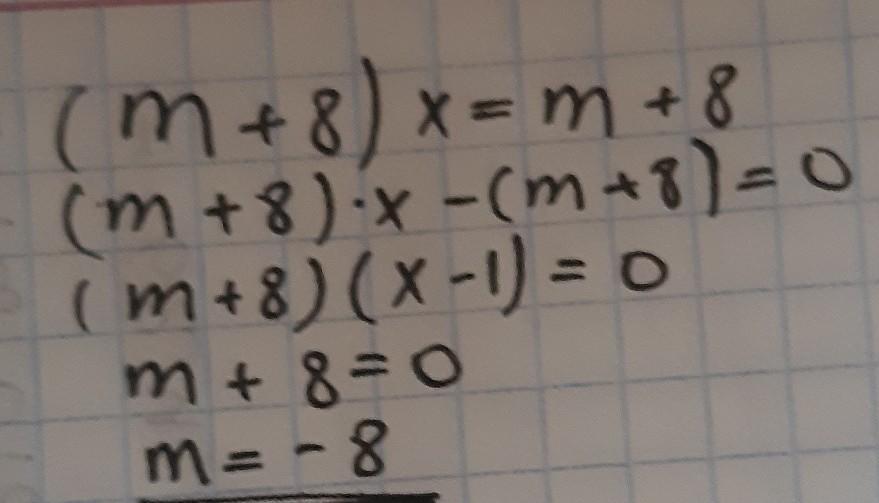 (m + 8) x = m + 8
(m + 8) · x - (m + 8) = 0
(m + 8) (x - 1) = 0
m + 8 = 0
m = - 8